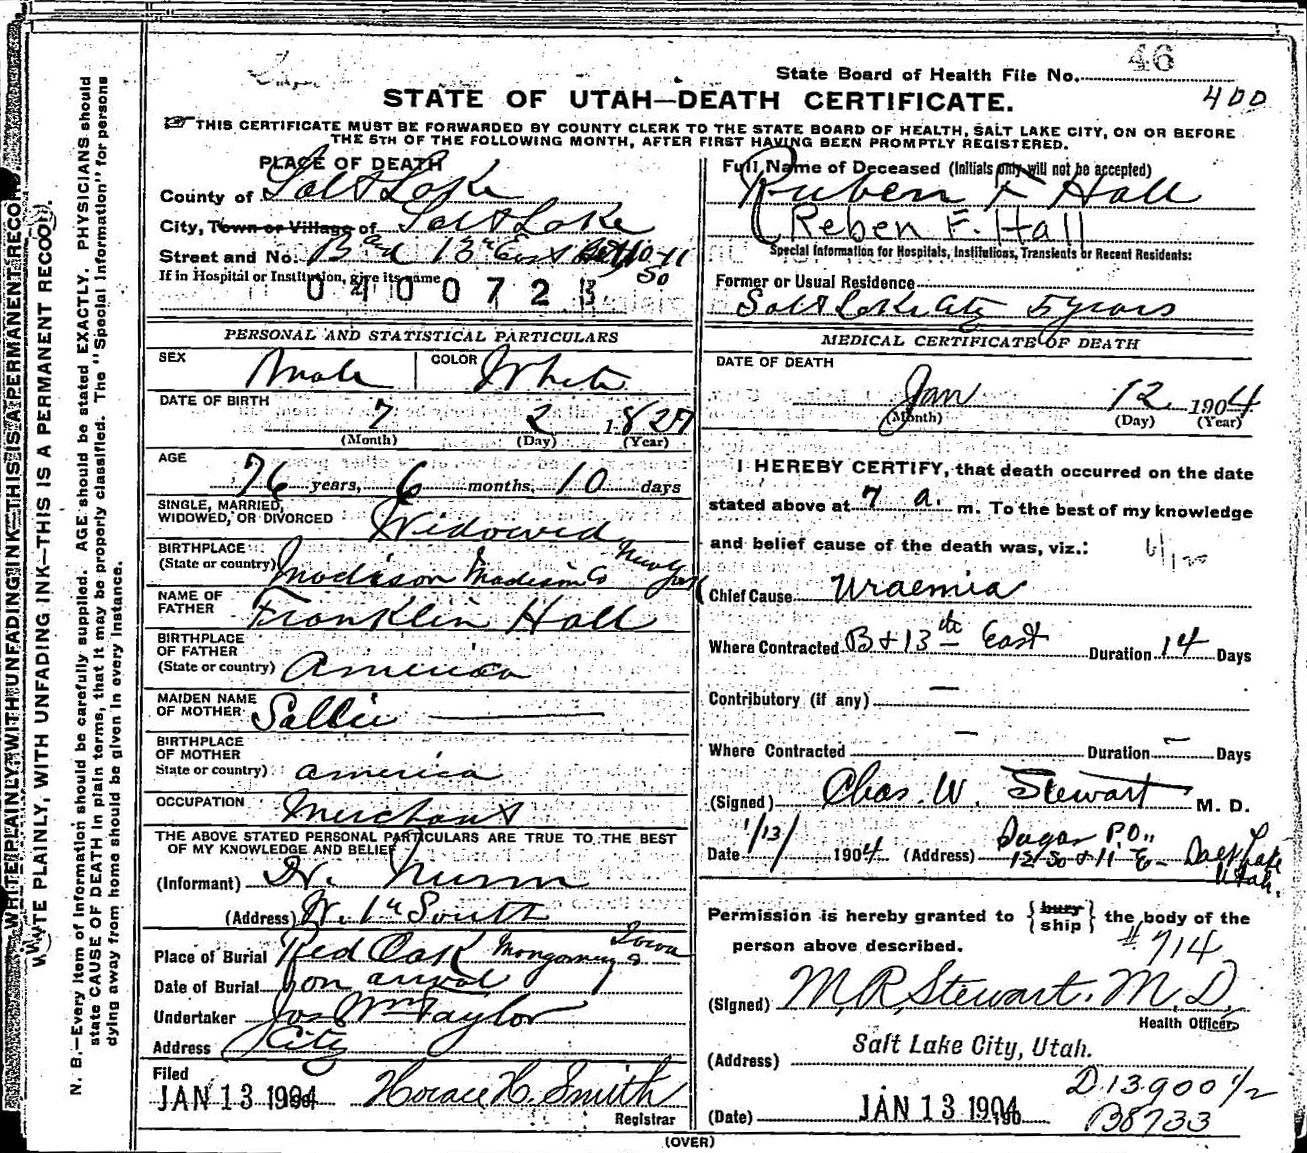 State Board of Health File No. 46
400
STATE OF UTAH—DEATH CERTIFICATE.
THIS CERTIFICATE MUST BE FORWARDED BY COUNTY CLERK TO THE STATE BOARD OF HEALTH, SALT LAKE CITY, ON OR BEFORE
THE 5TH OF THE FOLLOWING MONTH, AFTER FIRST HAVING BEEN PROMPTLY REGISTERED.
PLACE OF DEATH
County of Salt Lake
City, Town or Village of Salt Lake
Street and No. B and 13th East Bet 10-11
So
If in Hospital or Institution, give its name
0400723
PERSONAL AND STATISTICAL PARTICULARS
SEX Male COLOR White
DATE OF BIRTH
7 2 1827
(Month) (Day) (Year)
AGE
76 years, 6 months, 10 days
SINGLE, MARRIED,
WIDOWED, OR DIVORCED Widowed
BIRTHPLACE
(State or country) Madison Madison Co New York
NAME OF
FATHER Franklin Hall
BIRTHPLACE
OF FATHER
(State or country) America
MAIDEN NAME
OF MOTHER Sallie
BIRTHPLACE
OF MOTHER
State or country) America
OCCUPATION Merchant
THE ABOVE STATED PERSONAL PARTICULARS ARE TRUE TO THE BEST
OF MY KNOWLEDGE AND BELIEF
(Informant) Nunn
(Address) W. 1st South
Place of Burial Red Oak Montgomery Co Iowa
Date of Burial on arrival
Undertaker Jos Wm Taylor
Address City
Filed
JAN 13 1904 Horace H. Smith
Registrar
Full Name of Deceased (Initials only will not be accepted)
Ruben F Hall
(Reben F. Hall
Special Information for Hospitals, Institutions, Transients or Recent Residents:
Former or Usual Residence
Salt Lake City 5 years
MEDICAL CERTIFICATE OF DEATH
DATE OF DEATH
Jan 12 1904
(Month) (Day) (Year)
I HEREBY CERTIFY, that death occurred on the date
stated above at 7 a. m. To the best of my knowledge
and belief cause of the death was, viz.: 
Chief Cause Uraemia
Where Contracted B & 13th East Duration 14 Days
Contributory (if any) —
Where Contracted — Duration – Days
(Signed) Chas. W. Stewart M. D.
Date 1/13/ 1904 (Address) Sugar P.O.,
12 So & 11 E — Salt Lake
Utah.
Permission is hereby granted to { bury ship } the body of the
person above described. # 714
(Signed) M. R. Stewart. M. D.
Health Officer
(Address) Salt Lake City, Utah.
D 13900 1/2
(Date) JAN 13 1904
B8733
(OVER)
WRITE PLAINLY, WITH UNFADING INK—THIS IS A PERMANENT RECORD
WRITE PLAINLY, WITH UNFADING INK—THIS IS A PERMANENT RECORD.
N. B.—Every item of information should be carefully supplied. AGE should be stated EXACTLY. PHYSICIANS should
state CAUSE OF DEATH in plain terms, that it may be properly classified. The "Special Information" for persons
dying away from home should be given in every instance.